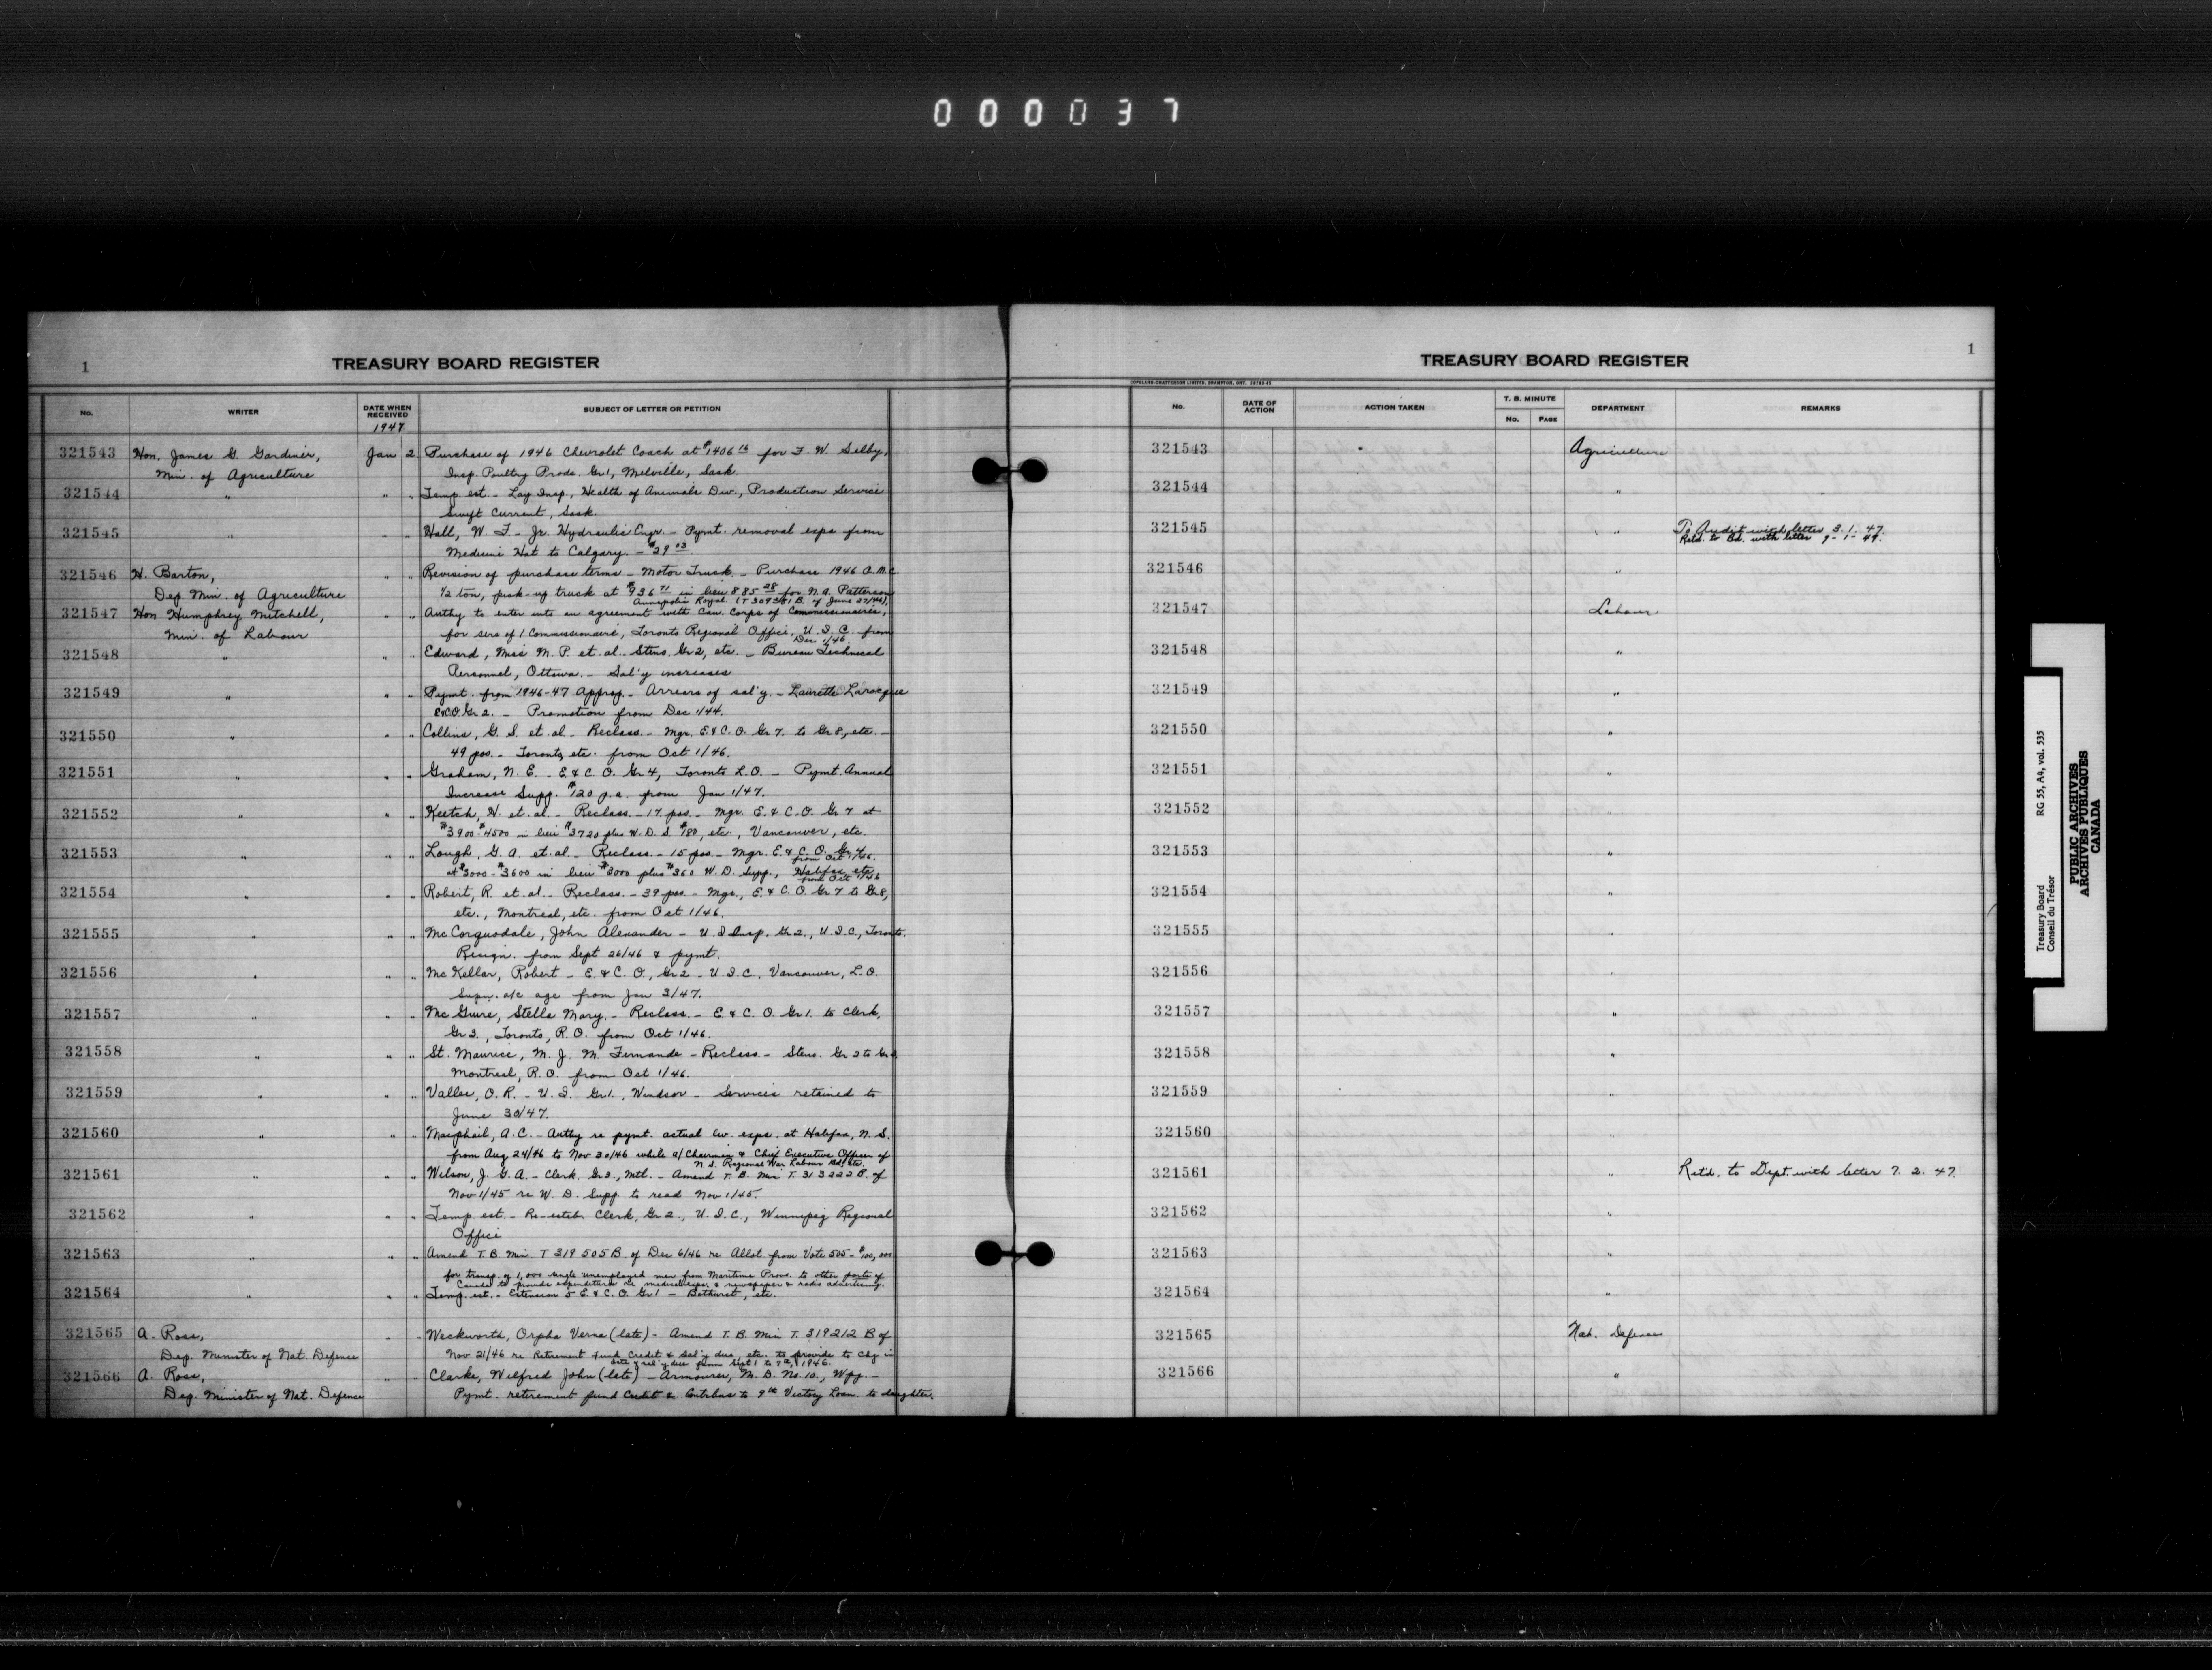 000037
1
TREASURY BOARD REGISTER
No.
WRITER
DATE WHEN RECEIVED
1947
SUBJECT OF LETTER OR PETITION
321543 Hon. James G. Gardiner, Jan 2 Purchase of 1946 Chevrolet Coach at $1406 for F. W. Selby,
Min. of Agriculture Insp. Poultry Prods. Gr 1, Melville, Sask.
321544 " " " Temp est. - Lay Insp., Health of Animals Div., Production Service
Swift Current, Sask.
321545 " " " Hall, W. F. - Jr. Hydraulic Engr. - Pymt. removal exps from
Medicine Hat to Calgary. - $29.03
321546 H. Barton, " " Revision of purchase terms - Motor Truck - Purchase 1946
Dep. Min. of Agriculture 1/2 ton, pick-up truck at $936.71 in lieu 885.28 for N. A. Patterson
Annapolis Royal. (T 309381 B. of June 27/46).
321547 Hon Humphrey Mitchell, " " Authy to enter into an agreement with Can. Corps of Commissionaires,
Min. of Labour for servs of 1 Commissionaire, Toronto Regional Office, U. I. C. from
Dec 1/46.
321548 " " " Edward, Miss M. P. et. al. Steno. Gr 2, etc. - Bureau Technical
Personnel, Ottawa. - Sal'y increases
321549 " " " Pymt. from 1946-47 Approp. - Arrears of sal'y. - Laurette Larocque
E&C.O. Gr 2. - Promotion from Dec 1/44.
321550 " " " Collins, G. S. et. al - Reclass. - Mgr. E & C. O. Gr 7. to Gr 8, etc. -
49 pos. - Toronto, etc. from Oct 1/46.
321551 " " " Graham, N. E. - E & C. O. Gr 4, Toronto L.O. - Pymt. Annual
Increase Supp. $120 p.a. from Jan 1/47.
321552 " " " Keetch, H. et. al. - Reclass. - 17 pos. - Mgr. E. & C.O. Gr 7 at
$3900-$4500 in lieu $3720 plus W. D. S. $180, etc., Vancouver, etc.
321553 " " " Lough, G. A. et. al - Reclass. - 15 pos - Mgr. E & C. O. Gr 4
from Oct 1/46.
at $3000-$3600 in lieu $3000 plus $360 W. D. Supp., Halifax, etc.
from Oct 1/46
321554 " " " Robert, R. et. al. - Reclass. - 39 pos - Mgr., E. & C. O. Gr 7 to Gr 8,
etc., Montreal, etc. from Oct 1/46.
321555 " " " McCorquodale, John Alexander - U. I Insp. Gr 2., U. I. C., Toronto.
Resign. from Sept 26/46 & pymt.
321556 " " " McKellar, Robert - E. & C. O., Gr 2 - U. I. C. Vancouver, L.O.
Supn. a/c age from Jan 3/47.
321557 " " " McGuire, Stella Mary. - Reclass. - E. & C. O. Gr 1. to Clerk,
Gr 3., Toronto, R. O. from Oct 1/46.
321558 " " " St. Maurice, M. J. M. Fernande - Reclass. - Steno. Gr 2 to Gr 3
Montreal, R.O. from Oct 1/46.
321559 " " " Vallee, O. R. - U. I. Gr 1., Windsor - Services retained to
June 30/47.
321560 " " " Macphail, A. C. - Authy re pymt. actual liv. exps. at Halifax, N. S.
from Aug 24/46 to Nov 30/46 while a/ Chairman & Chief Executive Officer of
N. S. Regional War Labour Bd., etc.
321561 " " " Wilson, J. G. A. - Clerk. Gr 3., Mtl. - Amend T. B. Min T. 313222 B. of
Nov 1/45 re W. D. Supp to read Nov 1/45.
321562 " " " Temp est. - Re-estab. Clerk, Gr 2., U. I. C., Winnipeg Regional
Office
321563 " " " Amend T. B. Min. T 319505 B. of Dec 6/46 re Allot. from Vote 505 - $100,000
for transp. of 1,000 single unemployed men from Maritime Provs. to other parts of
Canada to provide expenditures re medical exps. & newspaper & radio advertising.
321564 " " " Temp. est. - Extension 5 E. & C. O. Gr 1 - Bathurst, etc.
321565 A. Ross, " " Weckworth, Orpha Verna (late) - Amend T. B. Min T. 319212 B of
Dep. Minister of Nat. Defence Nov 21/46 re Retirement Fund Credit & Sal'y due, etc. to provide to Chg in
date of sal'y due from Sept 1 to 7th, 1946.
321566 A. Ross, " " Clarke, Wilfred John (late) - Armourer, M. D. No. 10., Wpg. -
Dep. Minister of Nat. Defence Pymt. retirement fund Credit & Contribns to 9th Victory Loan to daughter.
1
TREASURY BOARD REGISTER
COPELAND-CHATTERSON LIMITED, BRAMPTON, ONT.
No.
DATE OF ACTION
ACTION TAKEN
T. B. MINUTE
No.
PAGE
DEPARTMENT
REMARKS
321543 Agriculture
321544 "
321545 " To Audit with letter 3. 1. 47.
Retd. to Bd. with letter 9-1-47.
321546 "
321547 Labour
321548 "
321549 "
321550 "
321551 "
321552 "
321553 "
321554 "
321555 "
321556 "
321557 "
321558 "
321559 "
321560 "
321561 " Retd. to Dept. with letter 7. 2. 47.
321562 "
321563 "
321564 "
321565 Nat. Defence
321566 "
Treasury Board RG 55, A4, vol. 535
Conseil du Trésor
PUBLIC ARCHIVES
ARCHIVES PUBLIQUES
CANADA